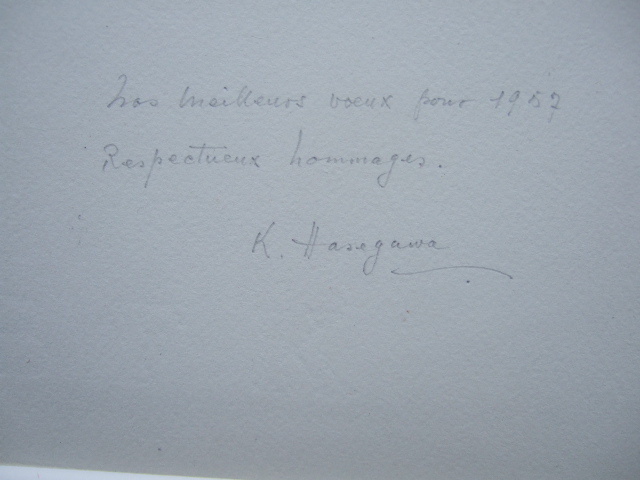 Nos meilleurs voeux pour 1957
Respectueux hommages.
K. Hasegawa